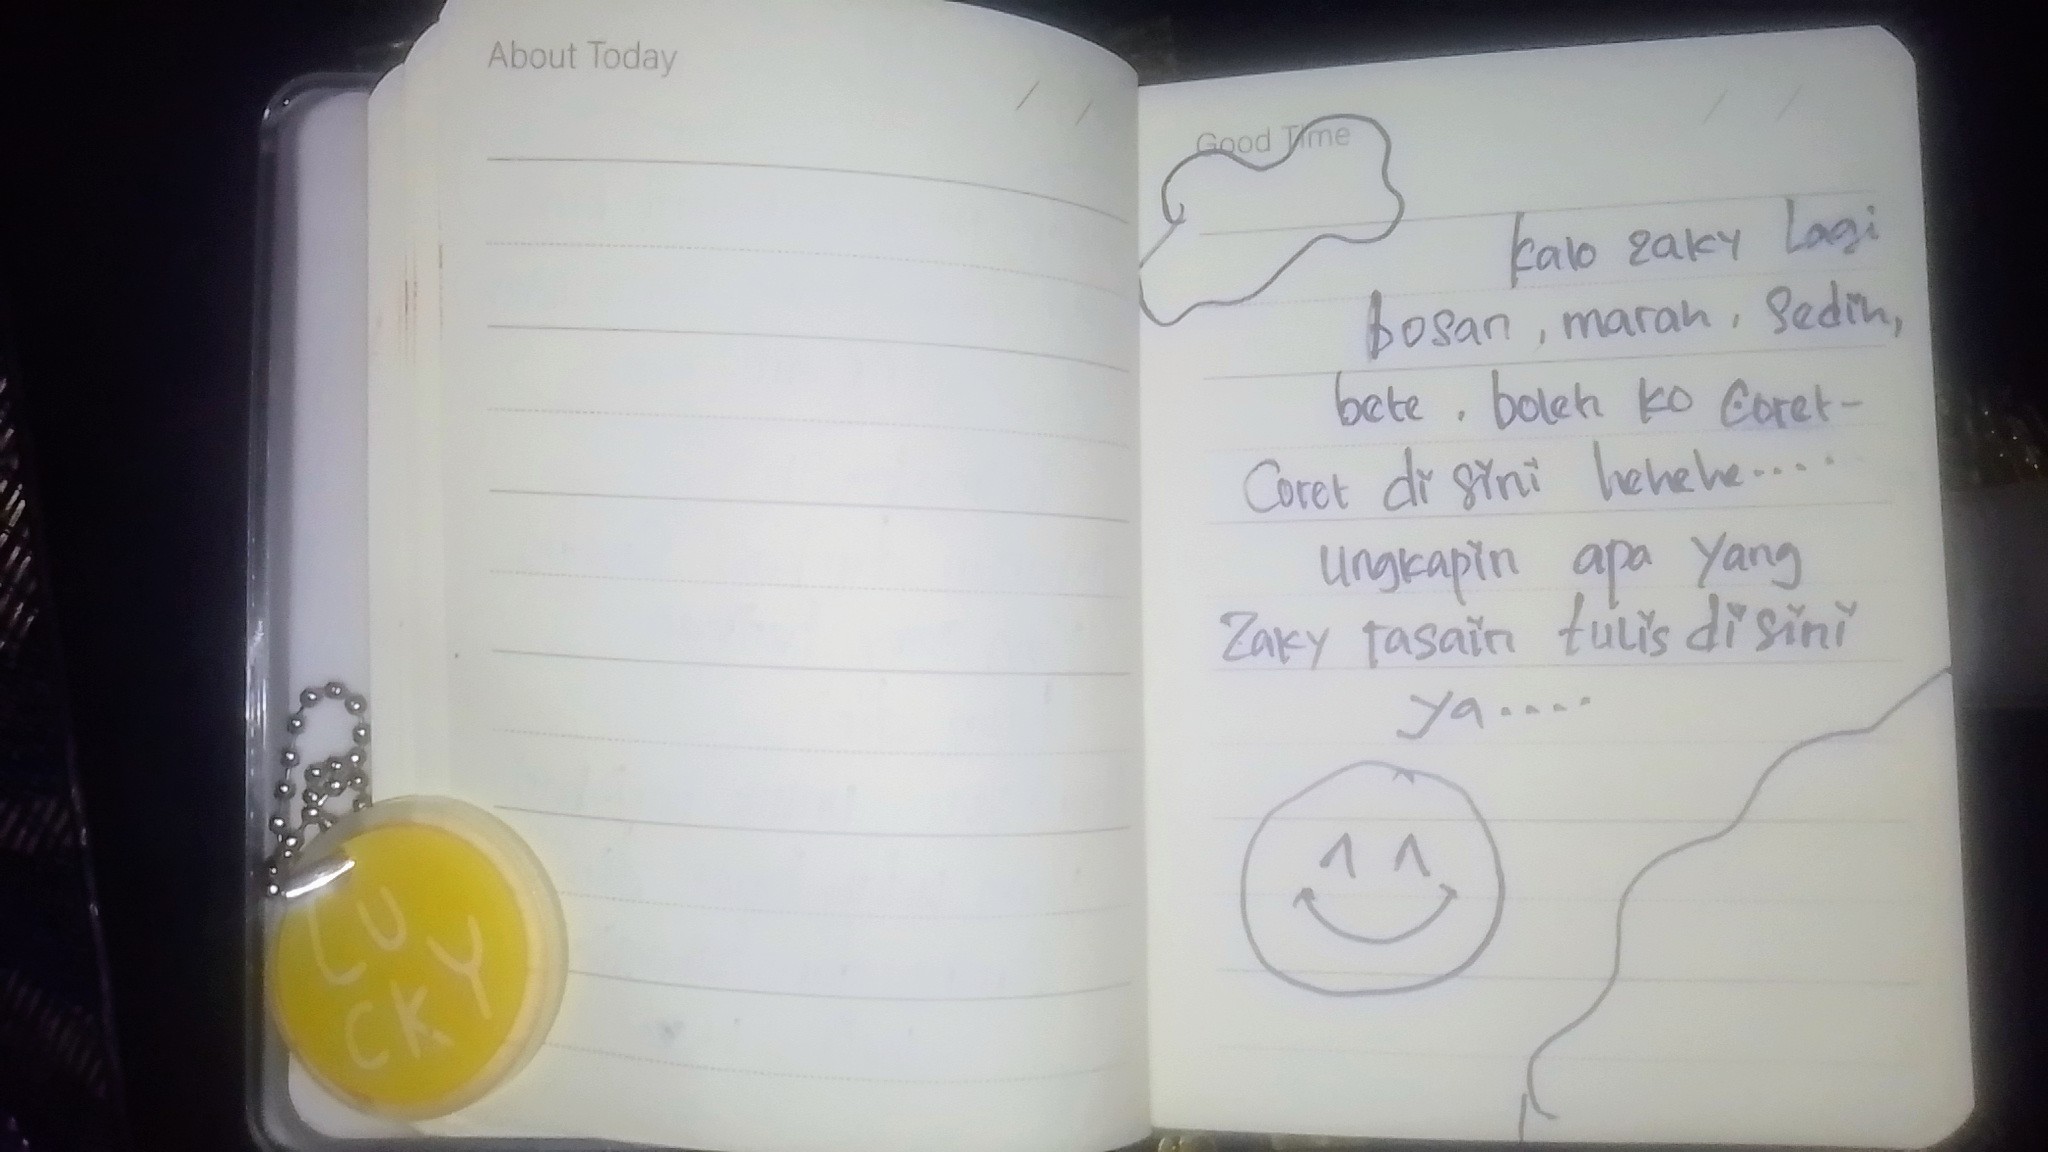 About Today
Good Time
kalo zaky Lagi
bosan, marah, Sedih,
bete. boleh ko Coret-
Coret di sini hehehe....
ungkapin apa yang
Zaky rasain tulis di sini
ya....
LU
CKY